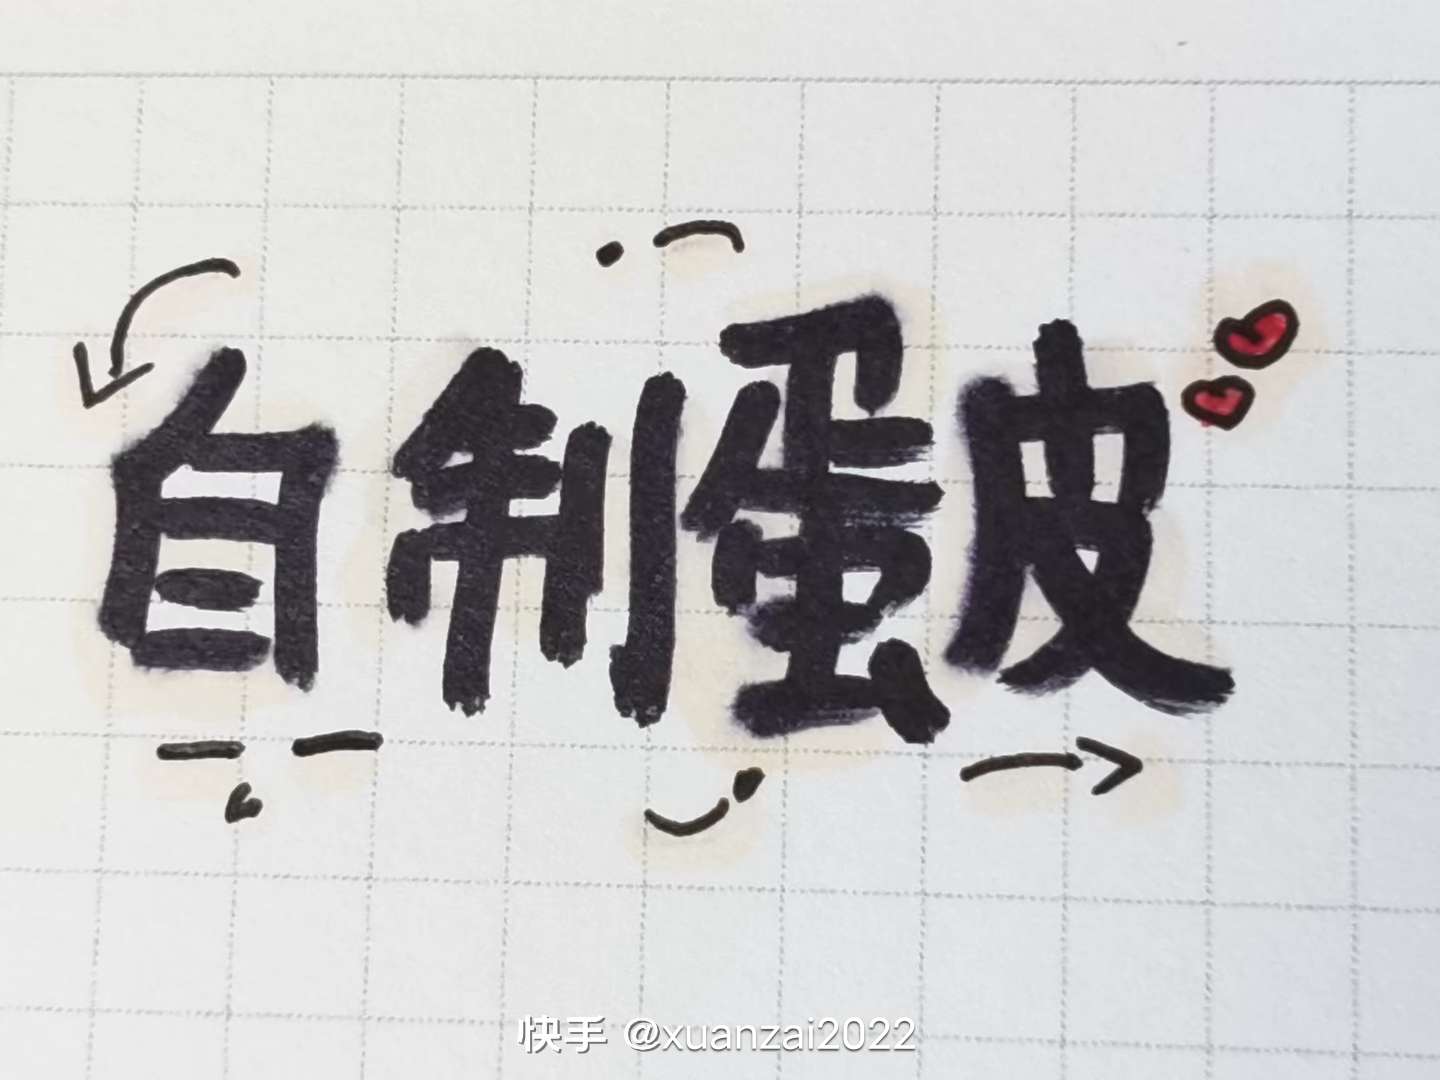 自制蛋皮
快手 @xuanzai2022